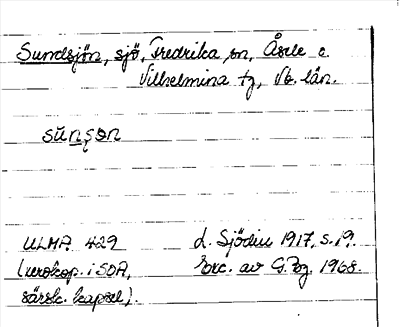 Sundsjön, sjö, Fredrika sn, Åsele o.
Vilhelmina tg, Vb. län.
sunson
ULMA 429 L. Sjödin 1917, s. 19.
(xerokop. i SOA, Exc. av G. Bg. 1968.
särsk. kapsel).